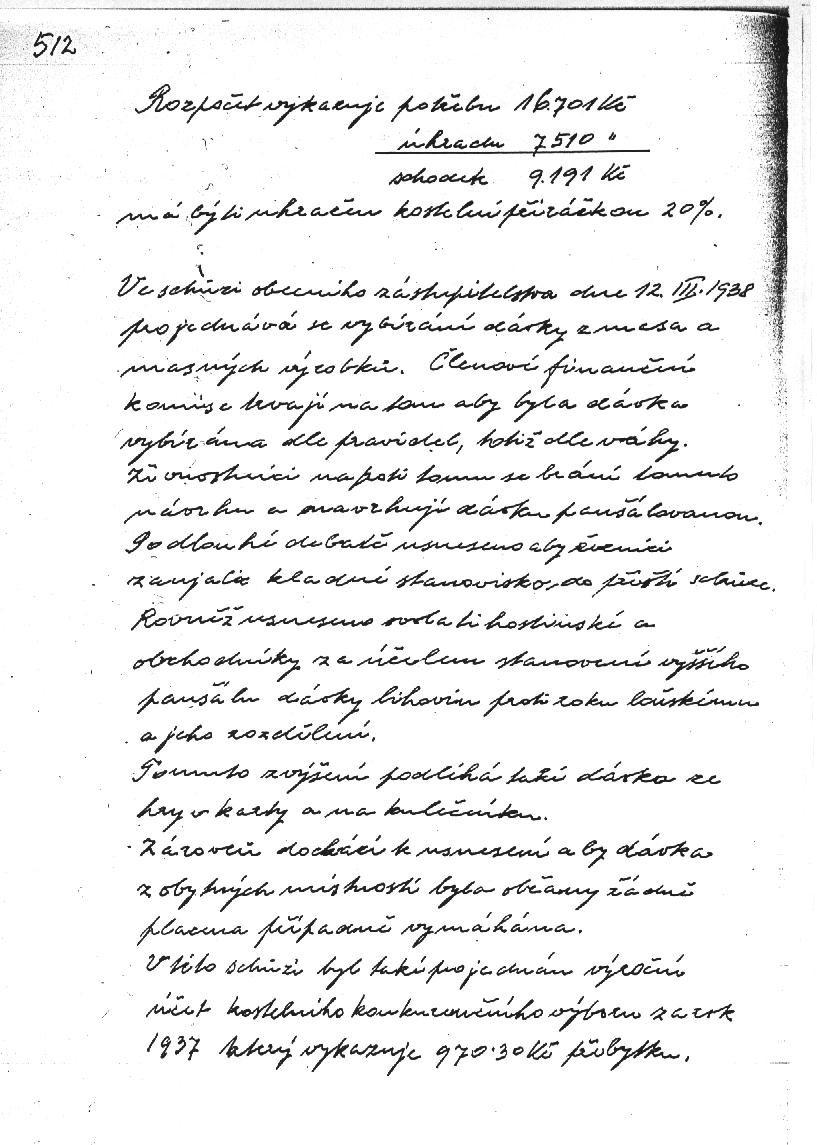 512
Rozpočet vykazuje potřebu 16.701 Kč
úhradu 7510 "
schodek 9.191 Kč
má býti uhražen kostelní přirážkou 20%.
Ve schůzi obecního zastupitelstva dne 12. III. 1938
projednává se vybírání dávky z masa a
masných výrobků. Členové finanční
komise trvají na tom aby byla dávka
vybírána dle pravidel, totiž dle váhy.
Živnostníci naproti tomu se brání tomuto
návrhu a navrhují dávku paušálovanou.
Po dlouhé debatě usneseno aby řezníci
zaujali kladné stanovisko, do příští schůze.
Rovněž usneseno svolati hostinské a
obchodníky za účelem stanovení vyššího
paušálu dávky lihovin proti roku loňskému
a jeho rozdělení.
Tomuto zvýšení podléhá také dávka ze
hry v karty a na kulečníku.
Zároveň dochází k usnesení aby dávka
z obytných místností byla občany řádně
placena případně vymáhána.
V této schůzi byl také projednán výroční
účet kostelního konkurenčního výboru za rok
1937 který vykazuje 970.30 Kč přebytku.